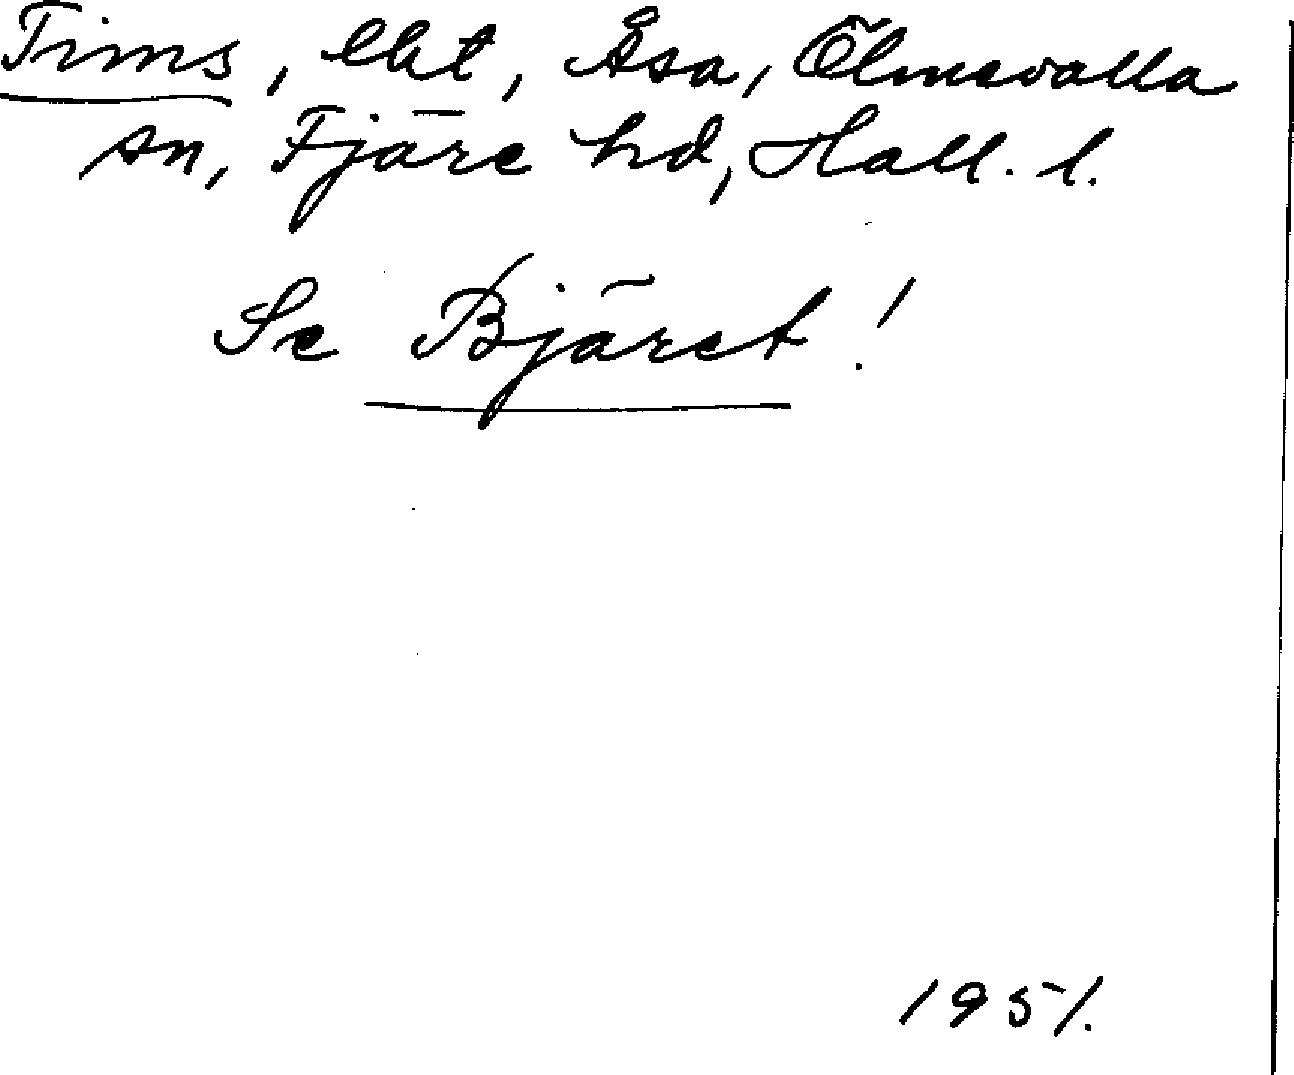 Tims, lht, Åsa, Ölmevalla
sn, Fjäre hd, Hall. l.
Se Bjäret!
1951.